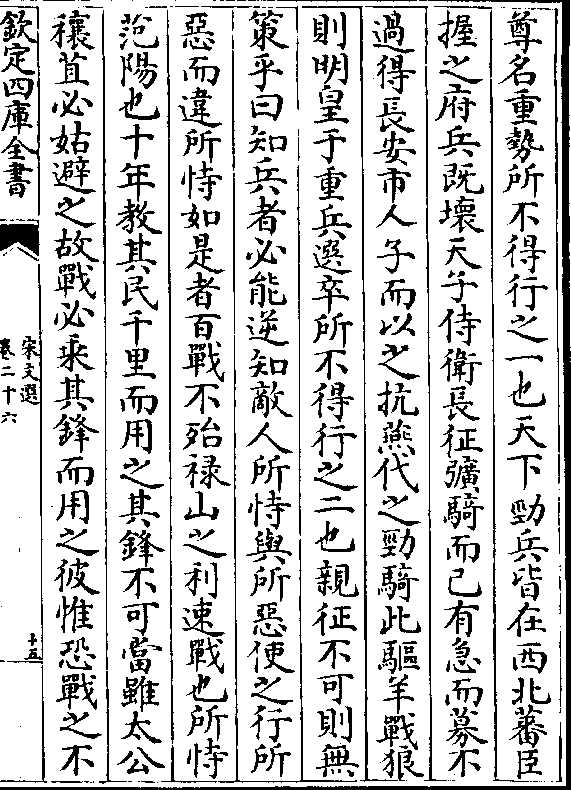 尊名重勢所不得行之一也天下勁兵皆在西北蕃臣
握之府兵既壞天子侍衛長征彍騎而已有急而募不
過得長安市人子而以之抗燕代之勁騎此驅羊戰狼
則明皇于重兵選卒所不得行之二也親征不可則無
策乎曰知兵者必能逆知敵人所恃與所惡使之行所
惡而違所恃如是者百戰不殆禄山之利速戰也所恃
范陽也十年教其民千里而用之其鋒不可當雖太公
穰苴必姑避之故戰必乘其鋒而用之彼惟恐戰之不
欽定四庫全書
宋文選
卷二十六
十五